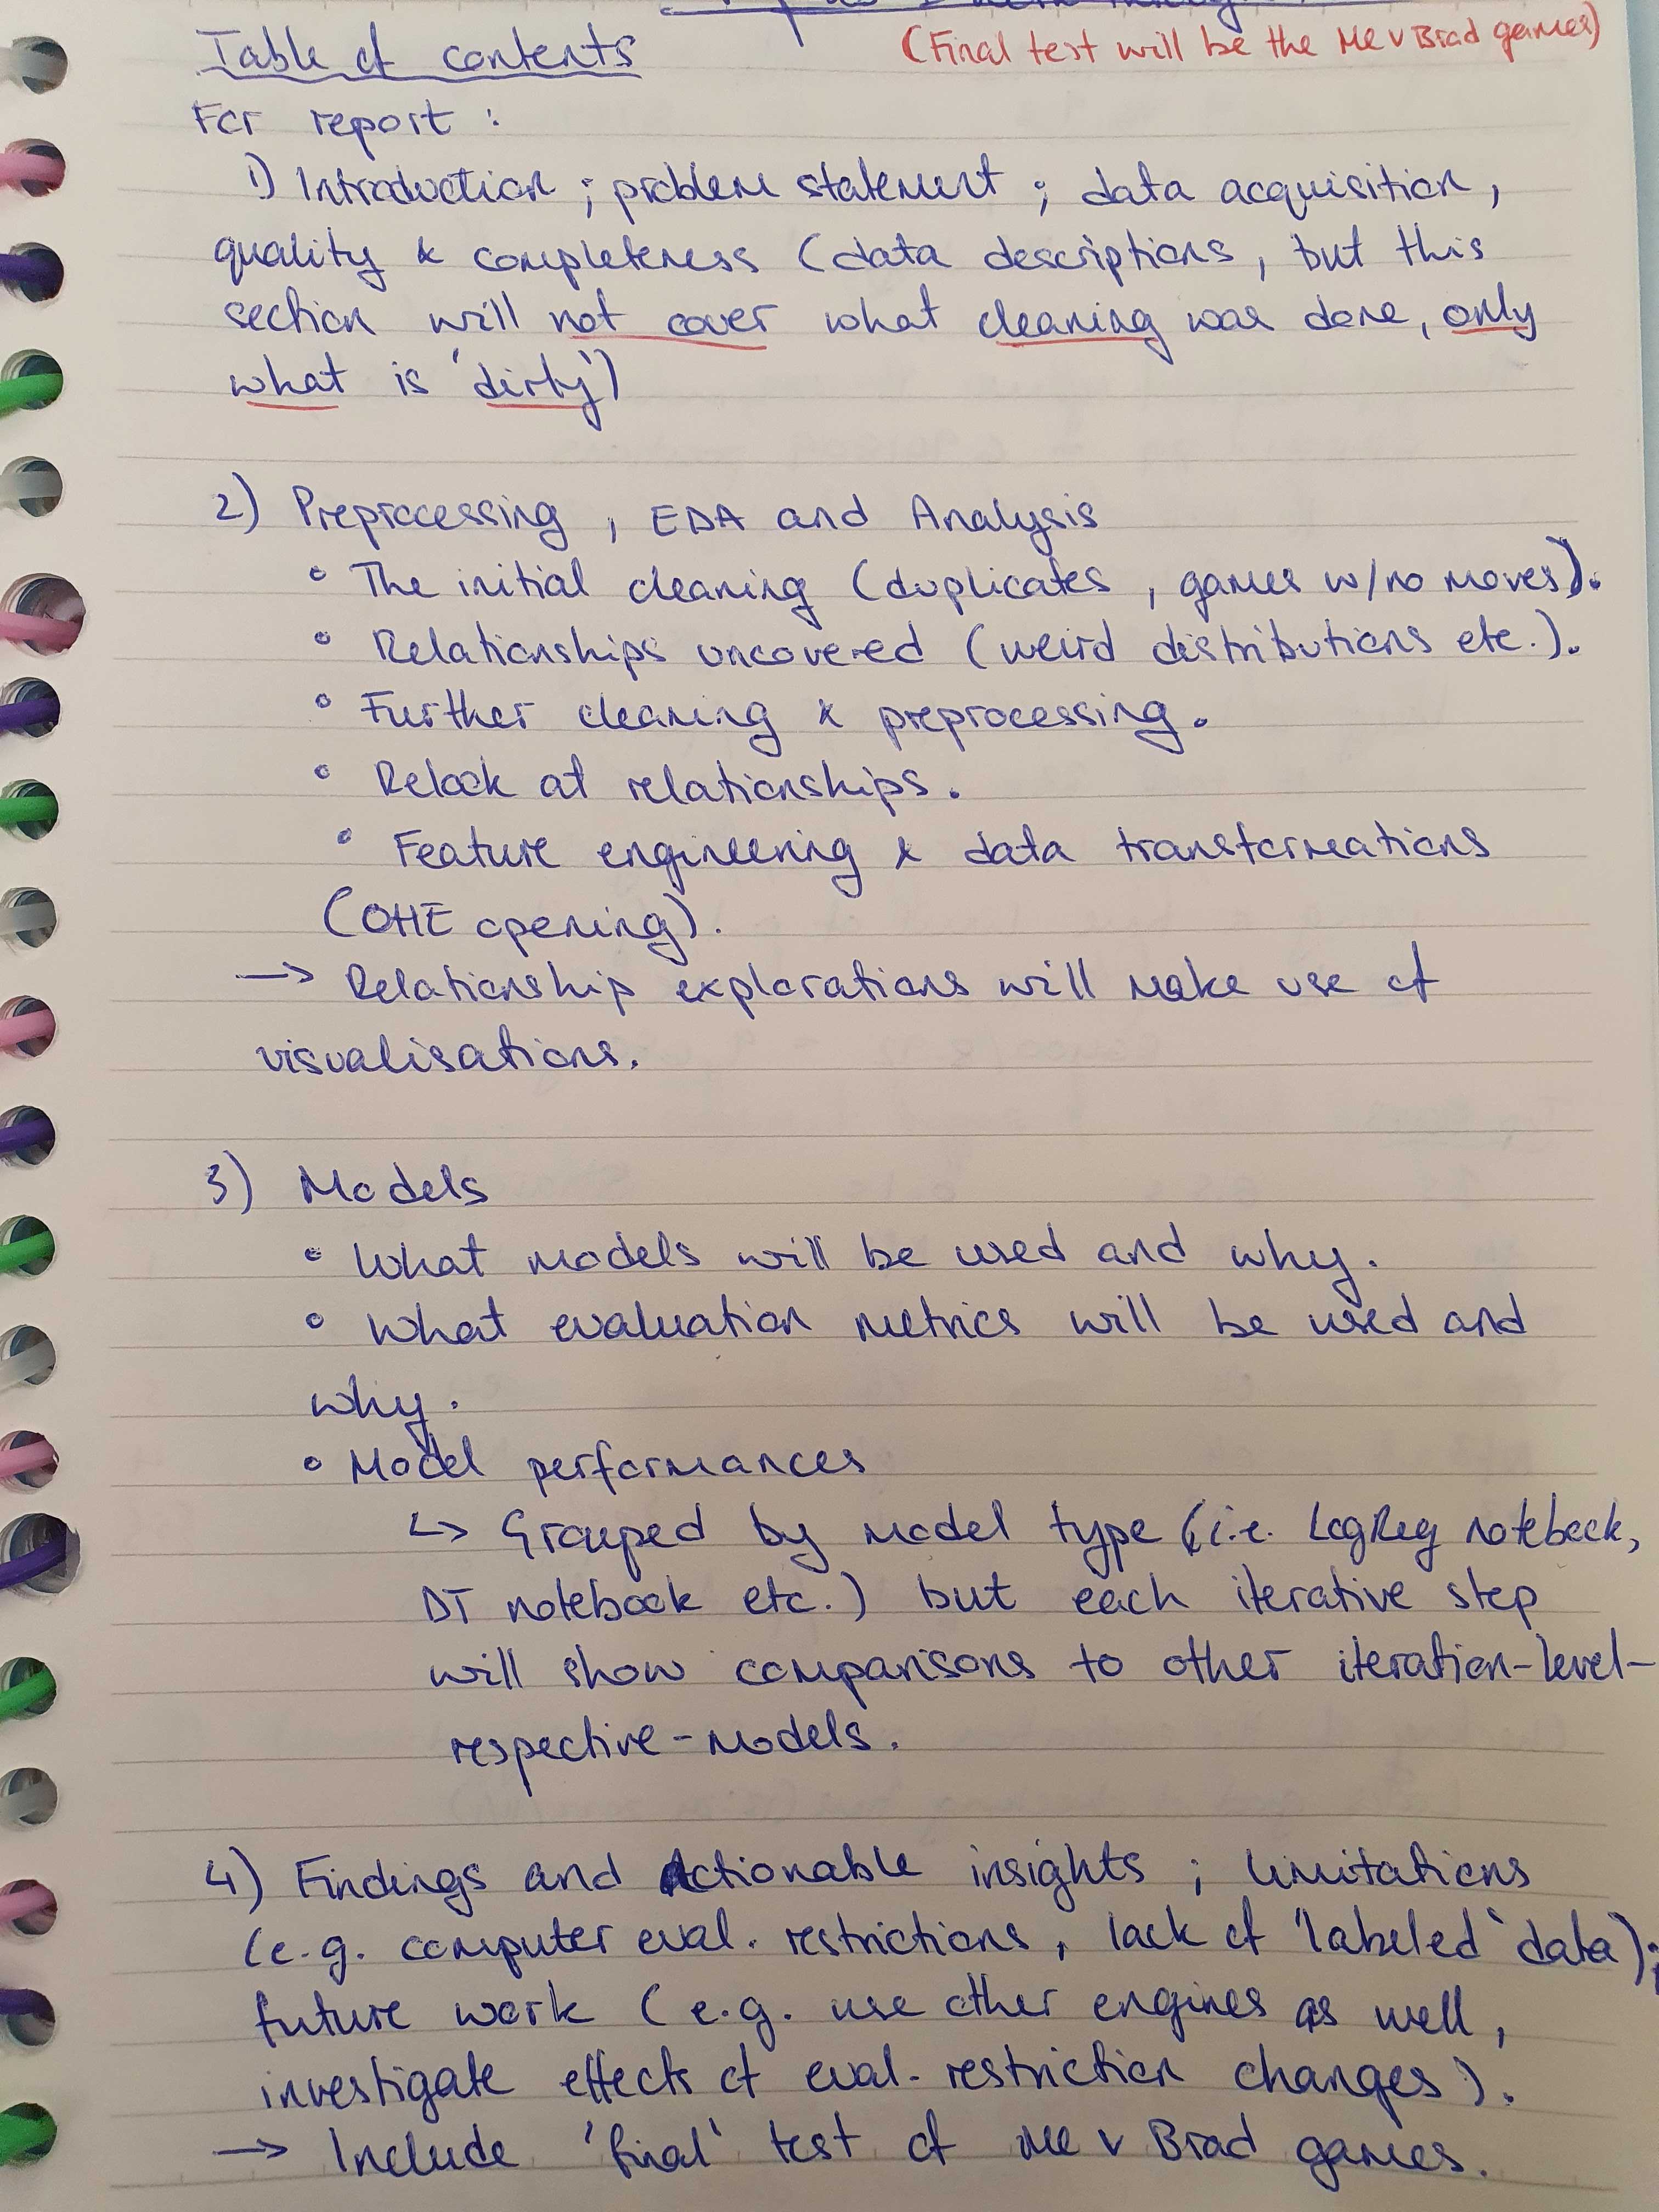 Table of contents
(Final test will be the Me v Brad games)
For report :
1) Introduction ; problem statement ; data acquisition,
quality & completeness (data descriptions, but this
section will not cover what cleaning was done, only
what is 'dirty')
2) Preprocessing, EDA and Analysis
• The initial cleaning (duplicates, games w/no moves).
• Relationships uncovered (weird distributions etc.).
• Further cleaning & preprocessing.
• Relook at relationships.
• Feature engineering & data transformations
(OHE opening).
→ Relationship explorations will make use of
visualisations.
3) Models
• What models will be used and why.
• What evaluation metrics will be used and
why.
• Model performances
↳ Grouped by model type (i.e. LogReg notebook,
DT notebook etc.) but each iterative step
will show comparisons to other iteration-level-
respective-models.
4) Findings and Actionable insights ; limitations
(e.g. computer eval. restrictions, lack of 'labeled' data);
future work (e.g. use other engines as well,
investigate effects of eval. restriction changes).
→ Include 'final' test of Me v Brad games.